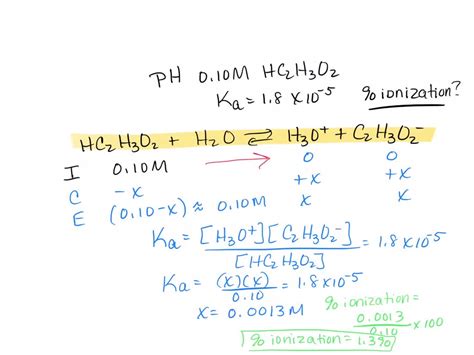 PH 0.10M HC2H3O2
Ka = 1.8 x 10^-5 % ionization?
HC2H3O2 + H2O ⇌ H3O+ + C2H3O2^-
I 0.10M → 0 0
C -x +x +x
E (0.10-x) ≈ 0.10M x x
Ka = [H3O+][C2H3O2^-] / [HC2H3O2] = 1.8 x 10^-5
Ka = (x)(x) / 0.10 = 1.8 x 10^-5
x = 0.0013 M
% ionization =
0.0013 / 0.10 x 100
% ionization = 1.3%